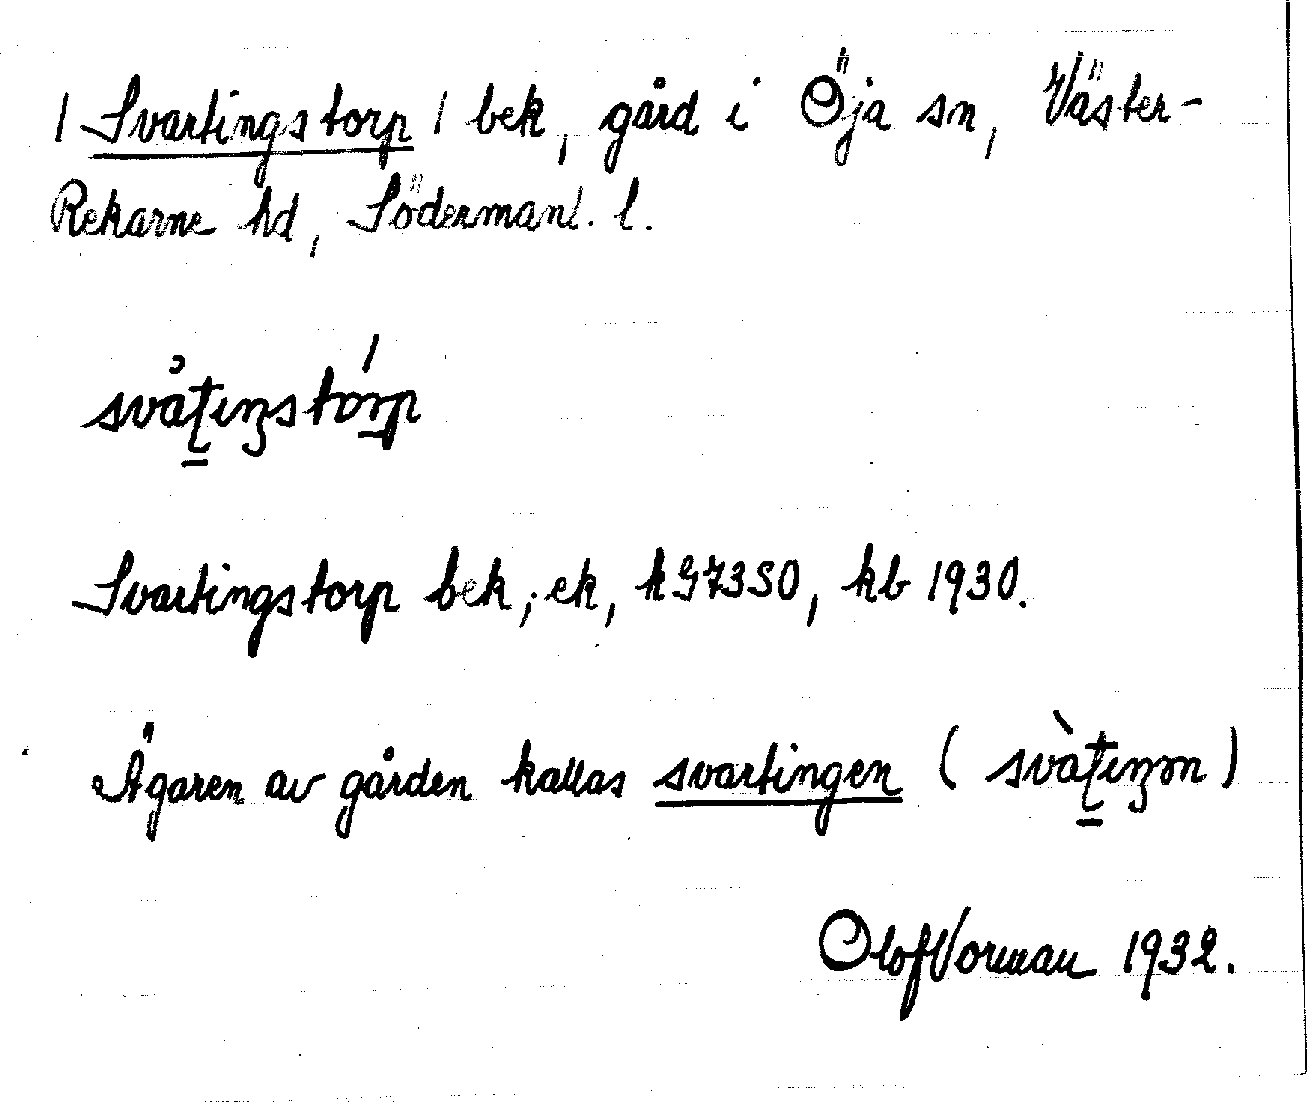 / Svartingstorp / bek, gård i Öja sn, Väster-
Rekarne hd, Södermanl. l.
svåtiŋstórp
Svartingstorp bek; ek, kG7350, kb 1930.
Ägaren av gården kallas svartingen ( svàtiŋən )
Olof Vorman 1932.